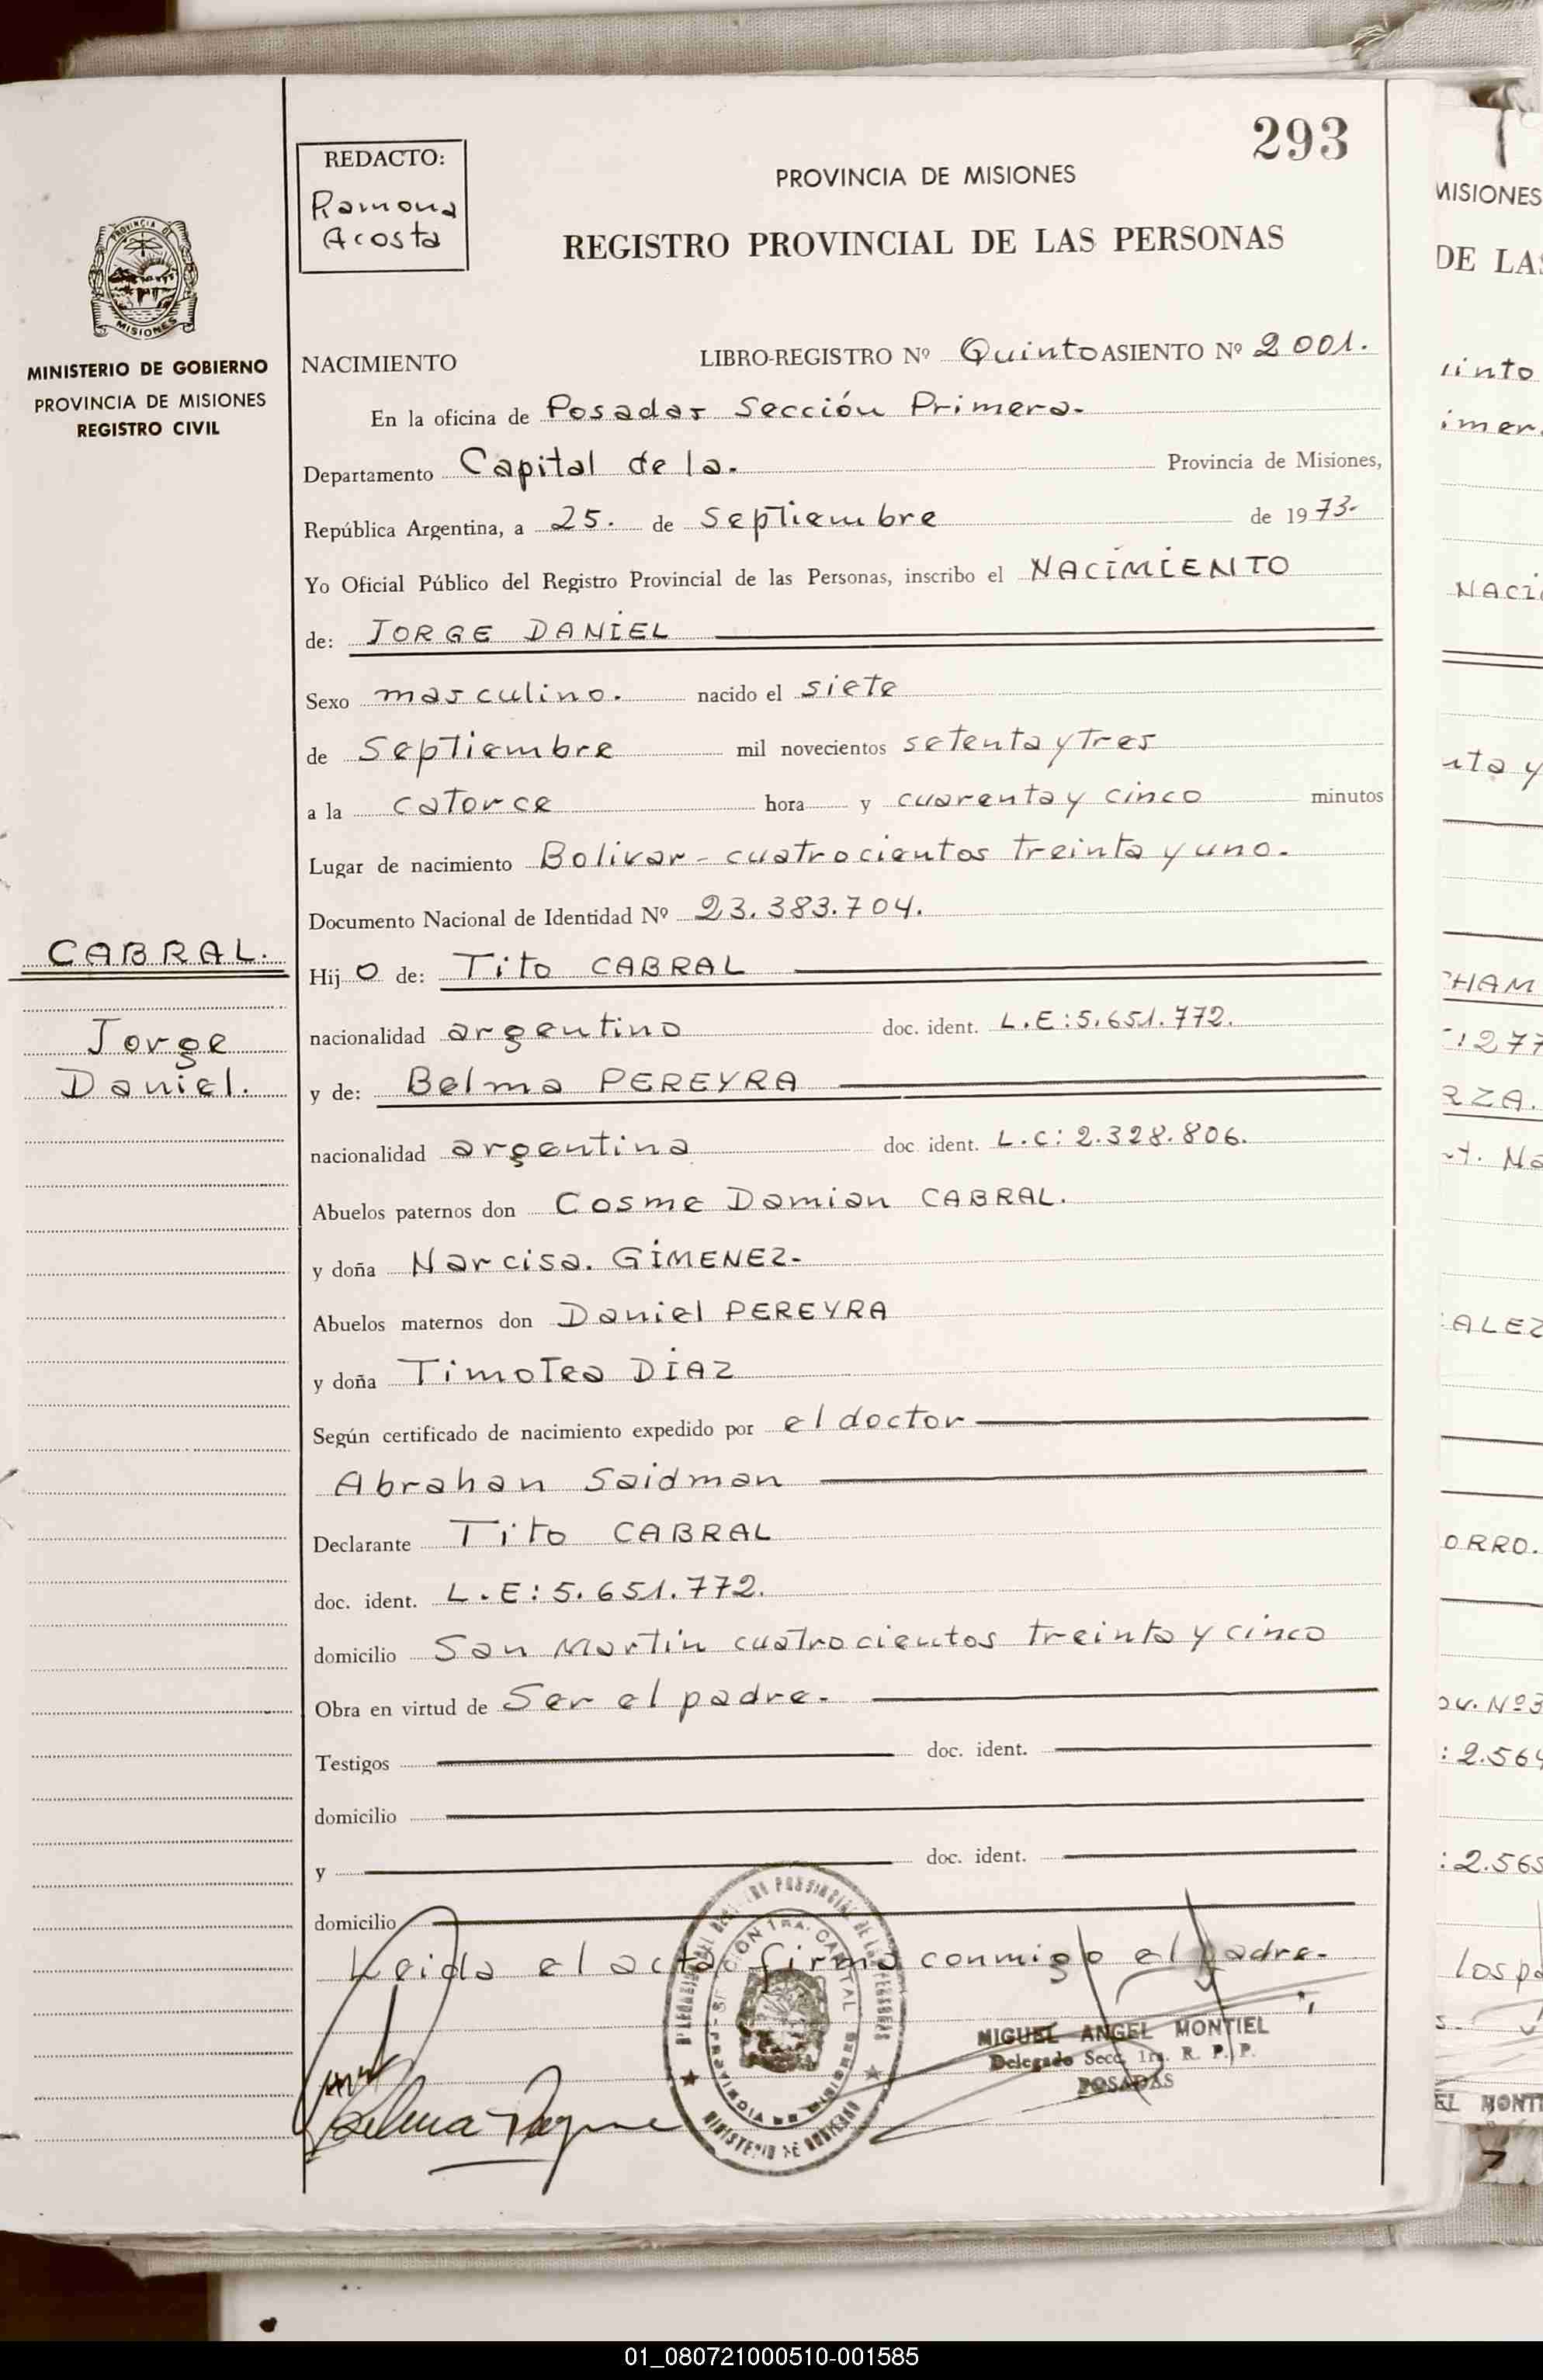 293
REDACTO:
Ramona
Acosta
PROVINCIA DE MISIONES
REGISTRO PROVINCIAL DE LAS PERSONAS
PROVINCIA DE
MISIONES
MINISTERIO DE GOBIERNO
PROVINCIA DE MISIONES
REGISTRO CIVIL
NACIMIENTO LIBRO-REGISTRO Nº Quinto ASIENTO Nº 2001.
En la oficina de Posadas Sección Primera.
Departamento Capital de la. Provincia de Misiones,
República Argentina, a 25. de Septiembre de 1973-
Yo Oficial Público del Registro Provincial de las Personas, inscribo el NACIMIENTO
de: JORGE DANIEL
Sexo masculino. nacido el siete
de Septiembre mil novecientos setenta y tres
a la catorce hora y cuarenta y cinco minutos
Lugar de nacimiento Bolivar - cuatrocientos treinta y uno.
Documento Nacional de Identidad Nº 23.383.704.
CABRAL.
Jorge
Daniel.
Hijo de: Tito CABRAL
nacionalidad argentino doc. ident. L.E: 5.651.772.
y de: Belma PEREYRA
nacionalidad argentina doc. ident. L.C: 2.328.806.
Abuelos paternos don Cosme Damian CABRAL.
y doña Narcisa. GIMENEZ-
Abuelos maternos don Daniel PEREYRA
y doña Timotea DIAZ
Según certificado de nacimiento expedido por el doctor
Abrahan Saidman
Declarante Tito CABRAL
doc. ident. L.E: 5.651.772.
domicilio San Martin cuatrocientos treinta y cinco
Obra en virtud de Ser el padre.
Testigos doc. ident.
domicilio
y doc. ident.
domicilio
Leida el acta firma conmigo el padre.
MIGUEL ANGEL MONTIEL
Delegado Secc. 1ra. R. P. P.
POSADAS
MISIONES
DE LAS
uinto
imer
NACI
nta y
CHAM
1277
RZA.
nt. Na
ALEZ
ORRO.
ov. Nº3
:2.564
:2.565
los pa
EL MONTI
01_080721000510-001585